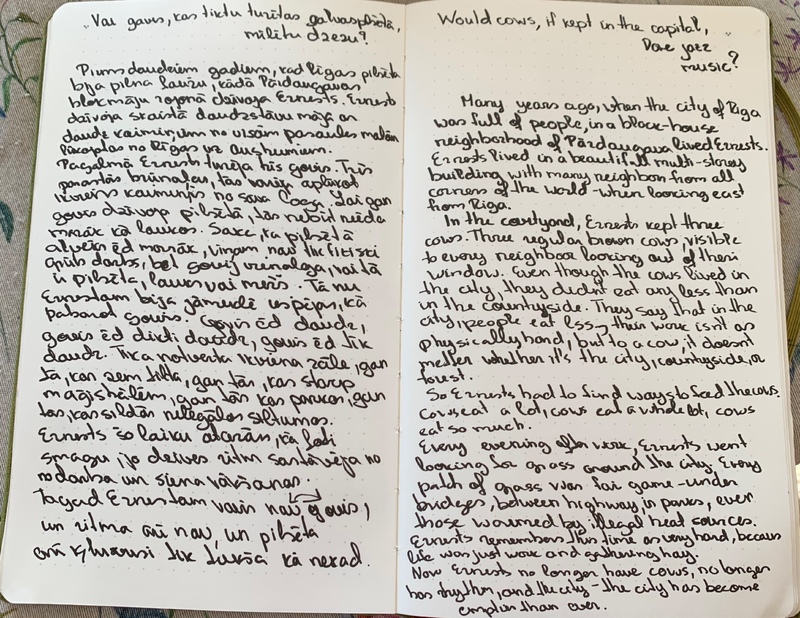 „Vai govis, kas tiktu turētas galvaspilsētā,
mīlētu džezu?
Pirms daudziem gadiem, kad Rīgas pilsēta
bija pilna ļaužu, kādā Pārdaugavas
blokmāju rajonā dzīvoja Ernests. Ernests
dzīvoja skaistā daudzstāvu mājā ar
daudz kaimiņiem no visām pasaules malām
no Rīgas uz austrumiem.
Pagalmā Ernests turēja trīs govis. Trīs
parastas brūnaļas, tās varēja aplūkot
ikviens kaimiņš no sava loga. Lai gan
govis dzīvoja pilsētā, tās nebūt neēda
mazāk kā laukos. Saka, ka pilsētā
cilvēki ēd mazāk, viņiem nav tik fiziski
grūts darbs, bet govij vienalga, vai tā
ir pilsēta, lauki vai mežs. Tā nu
Ernestam bija jāmeklē iespējas, kā
pabarot govis. Govis ēd daudz,
govis ēd dikti daudz, govis ēd tik
daudz. Tika notverta ikviena zāle, gan
tā, kas zem tilta, gan tā, kas starp
maģistrālēm, gan tās kas parkos, gan
tās, kas sildās nelegālos siltumos.
Ernests šo laiku atcerās, kā ļoti
smagu, jo dzīves ritms sastāvēja no
no darba un siena vākšanas.
Tagad Ernestam vairs nav govis,
un ritma arī nav, un pilsēta
arī kļuvusi tik tukša kā nekad.
Would cows, if kept in the capital, „
love jazz
music?
Many years ago, when the city of Riga
was full of people, in a block-house
neighborhood of Pārdaugava lived Ernests.
Ernests lived in a beautifull multi-storey
building with many neighbors from all
corners of the world - when looking east
from Riga.
In the courtyard, Ernests kept three
cows. Three regular brown cows, visible
to every neighbor looking out of their
window. Even though the cows lived in
the city, they didn't eat any less than
in the countryside. They say that in the
city, people eat less, their work isn't as
physically hard, but to a cow, it doesn't
matter whether it's the city, countryside, or
forest.
So Ernests had to find ways to feed the cows.
Cows eat a lot, cows eat a whole lot, cows
eat so much.
Every evening after work, Ernests went
looking for grass around the city. Every
patch of grass was fair game - under
bridges, between highway, in parks, even
those warmed by illegal heat sources.
Ernests remembers this time as very hard, becaus
life was just work and gathering hay.
Now Ernests no longer have cows, no longer
has rhythm, and the city - the city has become
emptier than ever.